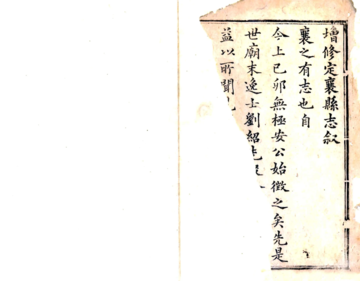 增修定襄縣志叙
襄之有志也自
今上己卯無極安公始徵之矣先是
世廟末逸士劉紹先
益以所聞